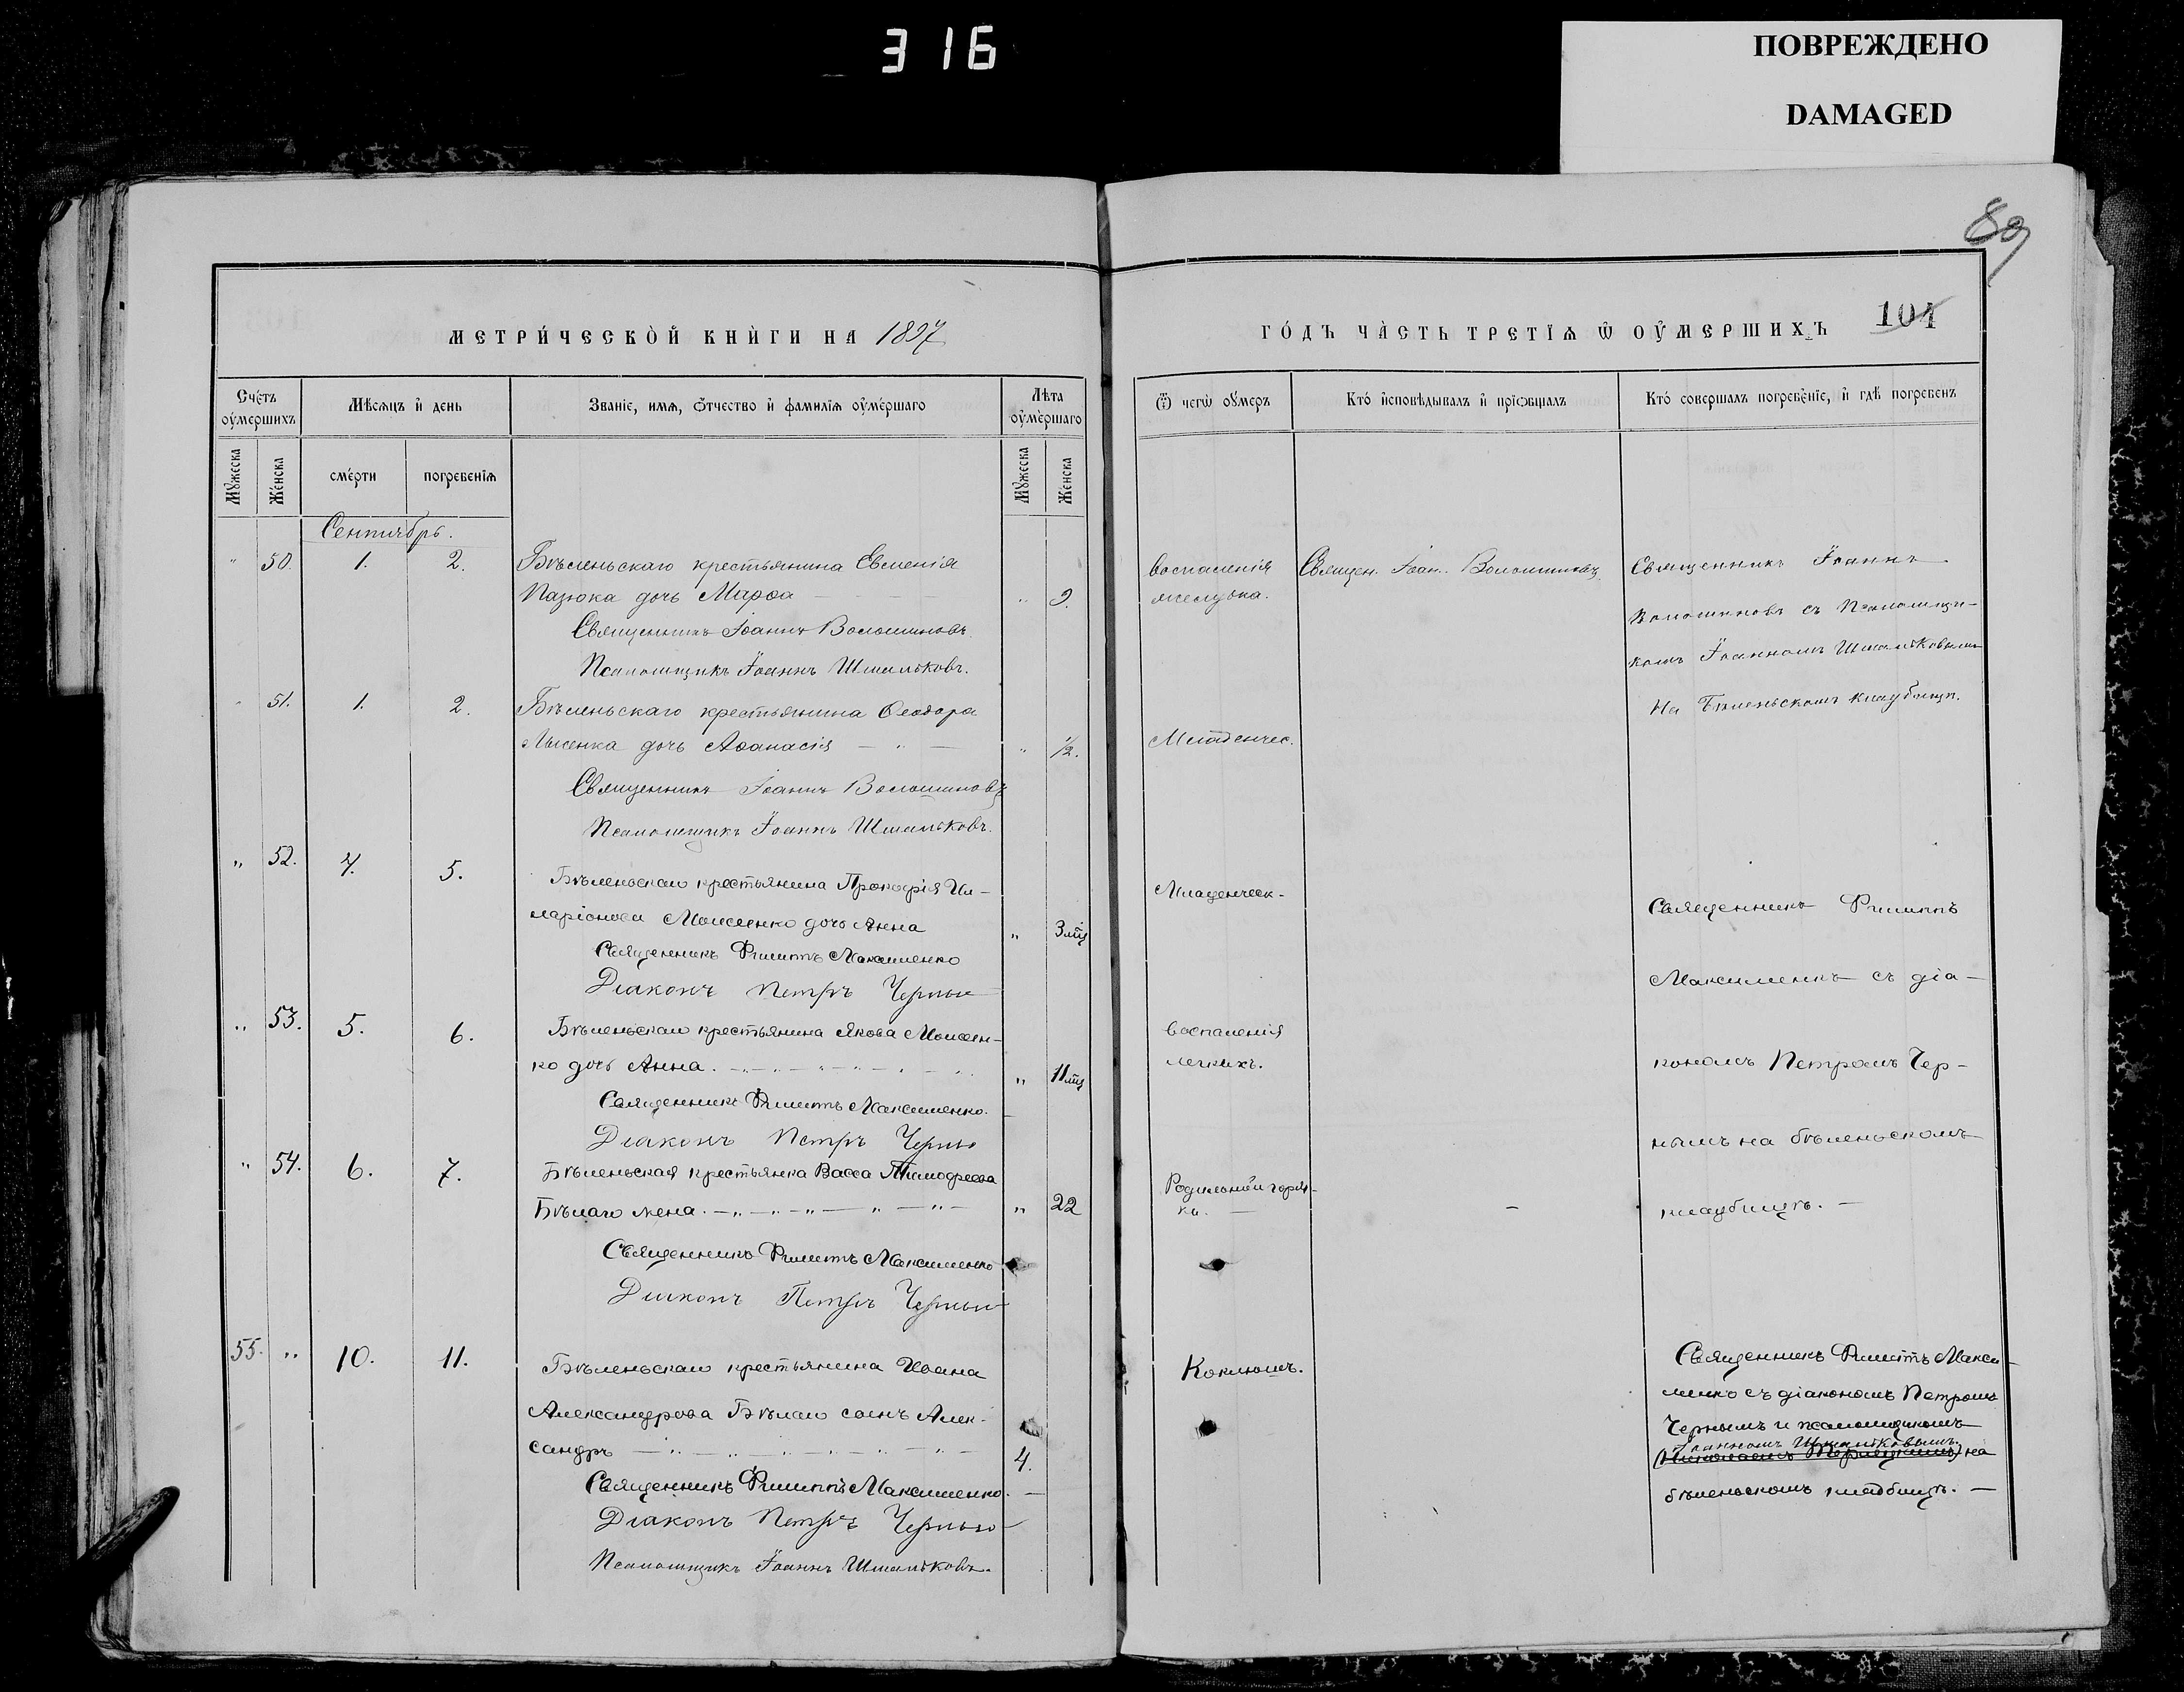 316
ПОВРЕЖДЕНО
DAMAGED
89
МЕТРИ́ЧЕСКОЙ КНИ́ГИ НА 1897
ГО́ДЪ ЧА́СТЬ ТРЕТІѦ Ѡ ОУ҆МЕРШИХЪ 104
Сче́тъ оу҆ме́ршихъ
Мѣсяцъ и҆ день
Званіе, имѧ, ѻ҆тчество и҆ фамиліѧ оу҆ме́ршаго
Лѣта оу҆ме́ршаго
Ѿ чегѡ̀ оу҆меръ
Кто́ и҆сповѣдывалъ и҆ прїѡбщалъ
Кто́ совершалъ погребе́ніе, и҆ гдѣ̀ погребенъ
Мꙋжеска
Же́нска
сме́рти
погребеніѧ
Мꙋжеска
Же́нска
Сентябрь.
" 50. 1. 2. Бѣленьскаго крестьянина Евменія
Пазюка дочь Марѳа — — — " 9.
Священникъ Іоаннъ Волошиновъ.
Псаломщикъ Іоаннъ Шмальковъ.
воспаленія
желудка.
Священ. Іоан. Волошиновъ
Священникъ Іоаннъ
Волошиновъ съ Псаломщи-
комъ Іоанномъ Шмальковымъ
На Бѣленьскомъ кладбищѣ.
" 51. 1. 2. Бѣленьскаго крестьянина Ѳеодора
Лысенка дочь Аѳанасія — " — " 1/2.
Священникъ Іоаннъ Волошиновъ
Псаломщикъ Іоаннъ Шмальковъ.
Младенчес.
" 52. 4. 5. Бѣленьскаго крестьянина Прокофія Ил-
ларіонова Моисеенко дочь Анна " 3 мц
Священникъ Филиппъ Максименко
Діаконъ Петръ Черный
Младенческ-
Священникъ Филиппъ
Максименко съ діа-
кономъ Петромъ Чер-
нымъ на бѣленьскомъ
кладбищѣ. —
" 53. 5. 6. Бѣленьскаго крестьянина Якова Моисеен-
ко дочь Анна. — " — " — " 11 мц
Священникъ Филиппъ Максименко.
Діаконъ Петръ Черный
воспаленія
легкихъ.
" 54. 6. 7. Бѣленьская крестьянка Васса Тимофеева
Бѣлаго жена. — " — " — " — " 22
Священникъ Филиппъ Максименко
Діаконъ Петръ Черный
Родильной горяч-
ки. — —
55. " 10. 11. Бѣленьскаго крестьянина Ивана
Александрова Бѣлаго сынъ Алек-
сандръ — " — " — " — 4.
Священникъ Филиппъ Максименко. —
Діаконъ Петръ Черный
Псаломщикъ Іоаннъ Шмальковъ.
Коклюшъ.
Священникъ Филиппъ Макси-
менко съ діакономъ Петромъ
Чернымъ и псаломщикомъ
Іоанномъ Шмальковымъ.
на
бѣленьскомъ кладбищѣ. —